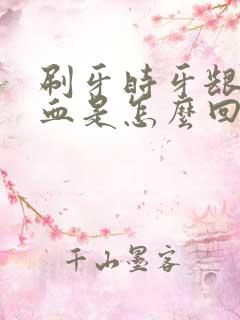 刷牙時牙齦
血是怎麼回
千山墨客